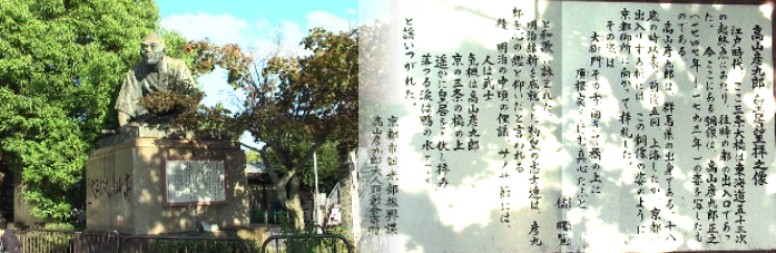 高山彦九郎 皇居望拝之像
江戸時代、ここ三条大橋は東海道五十三次
の起終点にあたり、往時の都の出入口であっ
た。今ここにある銅像は、高山彦九郎正之
(一七四七年~一七九三年)の姿を写したも
のである。
高山彦九郎は、群馬県の出身である。十八
歳の時以来、前後五回上洛したが、京都に
出入りする折には、この銅像の姿のように
京都御所に向かって拝礼した。
その姿は
大御門その方向きて橋の上に
頂根突きけむ真心たふと
橘曙覧
と和歌に詠まれた。
明治維新を成就した勤皇の志士達は、彦九
郎を心の鑑と仰いだと言われる
後、明治の中頃の俚謡 サノサ節には、
人は武士
気概は高山彦九郎
京の三条の橋の上
遥かに皇居をネ伏し拝み
落つる涙は鴨の水
と謡いつがれた。
京都市観光部振興課
高山彦九郎大人顕彰会